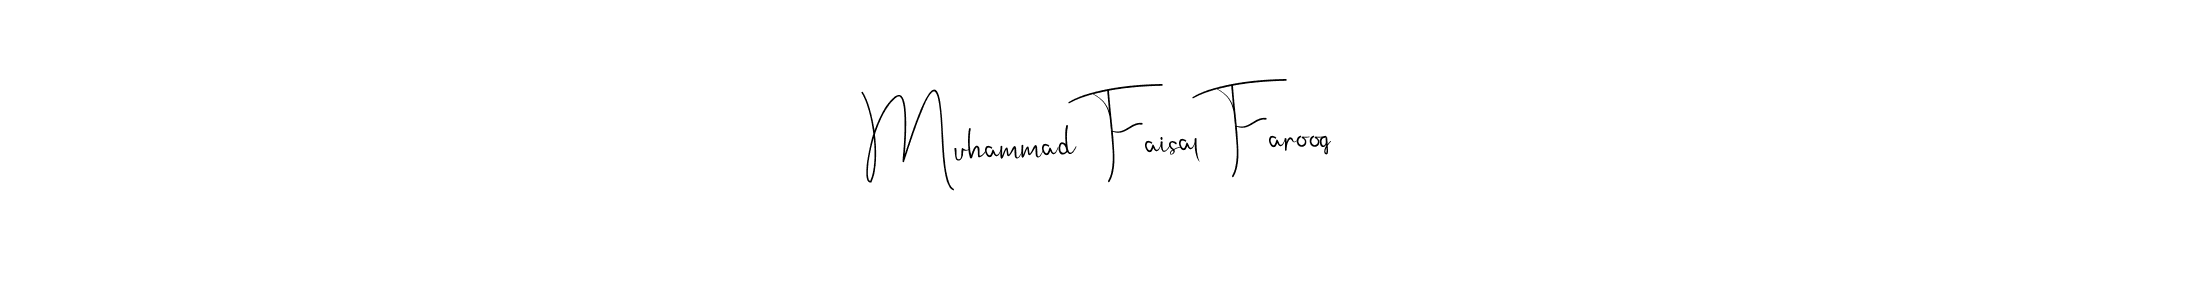 Muhammad Faisal Farooq